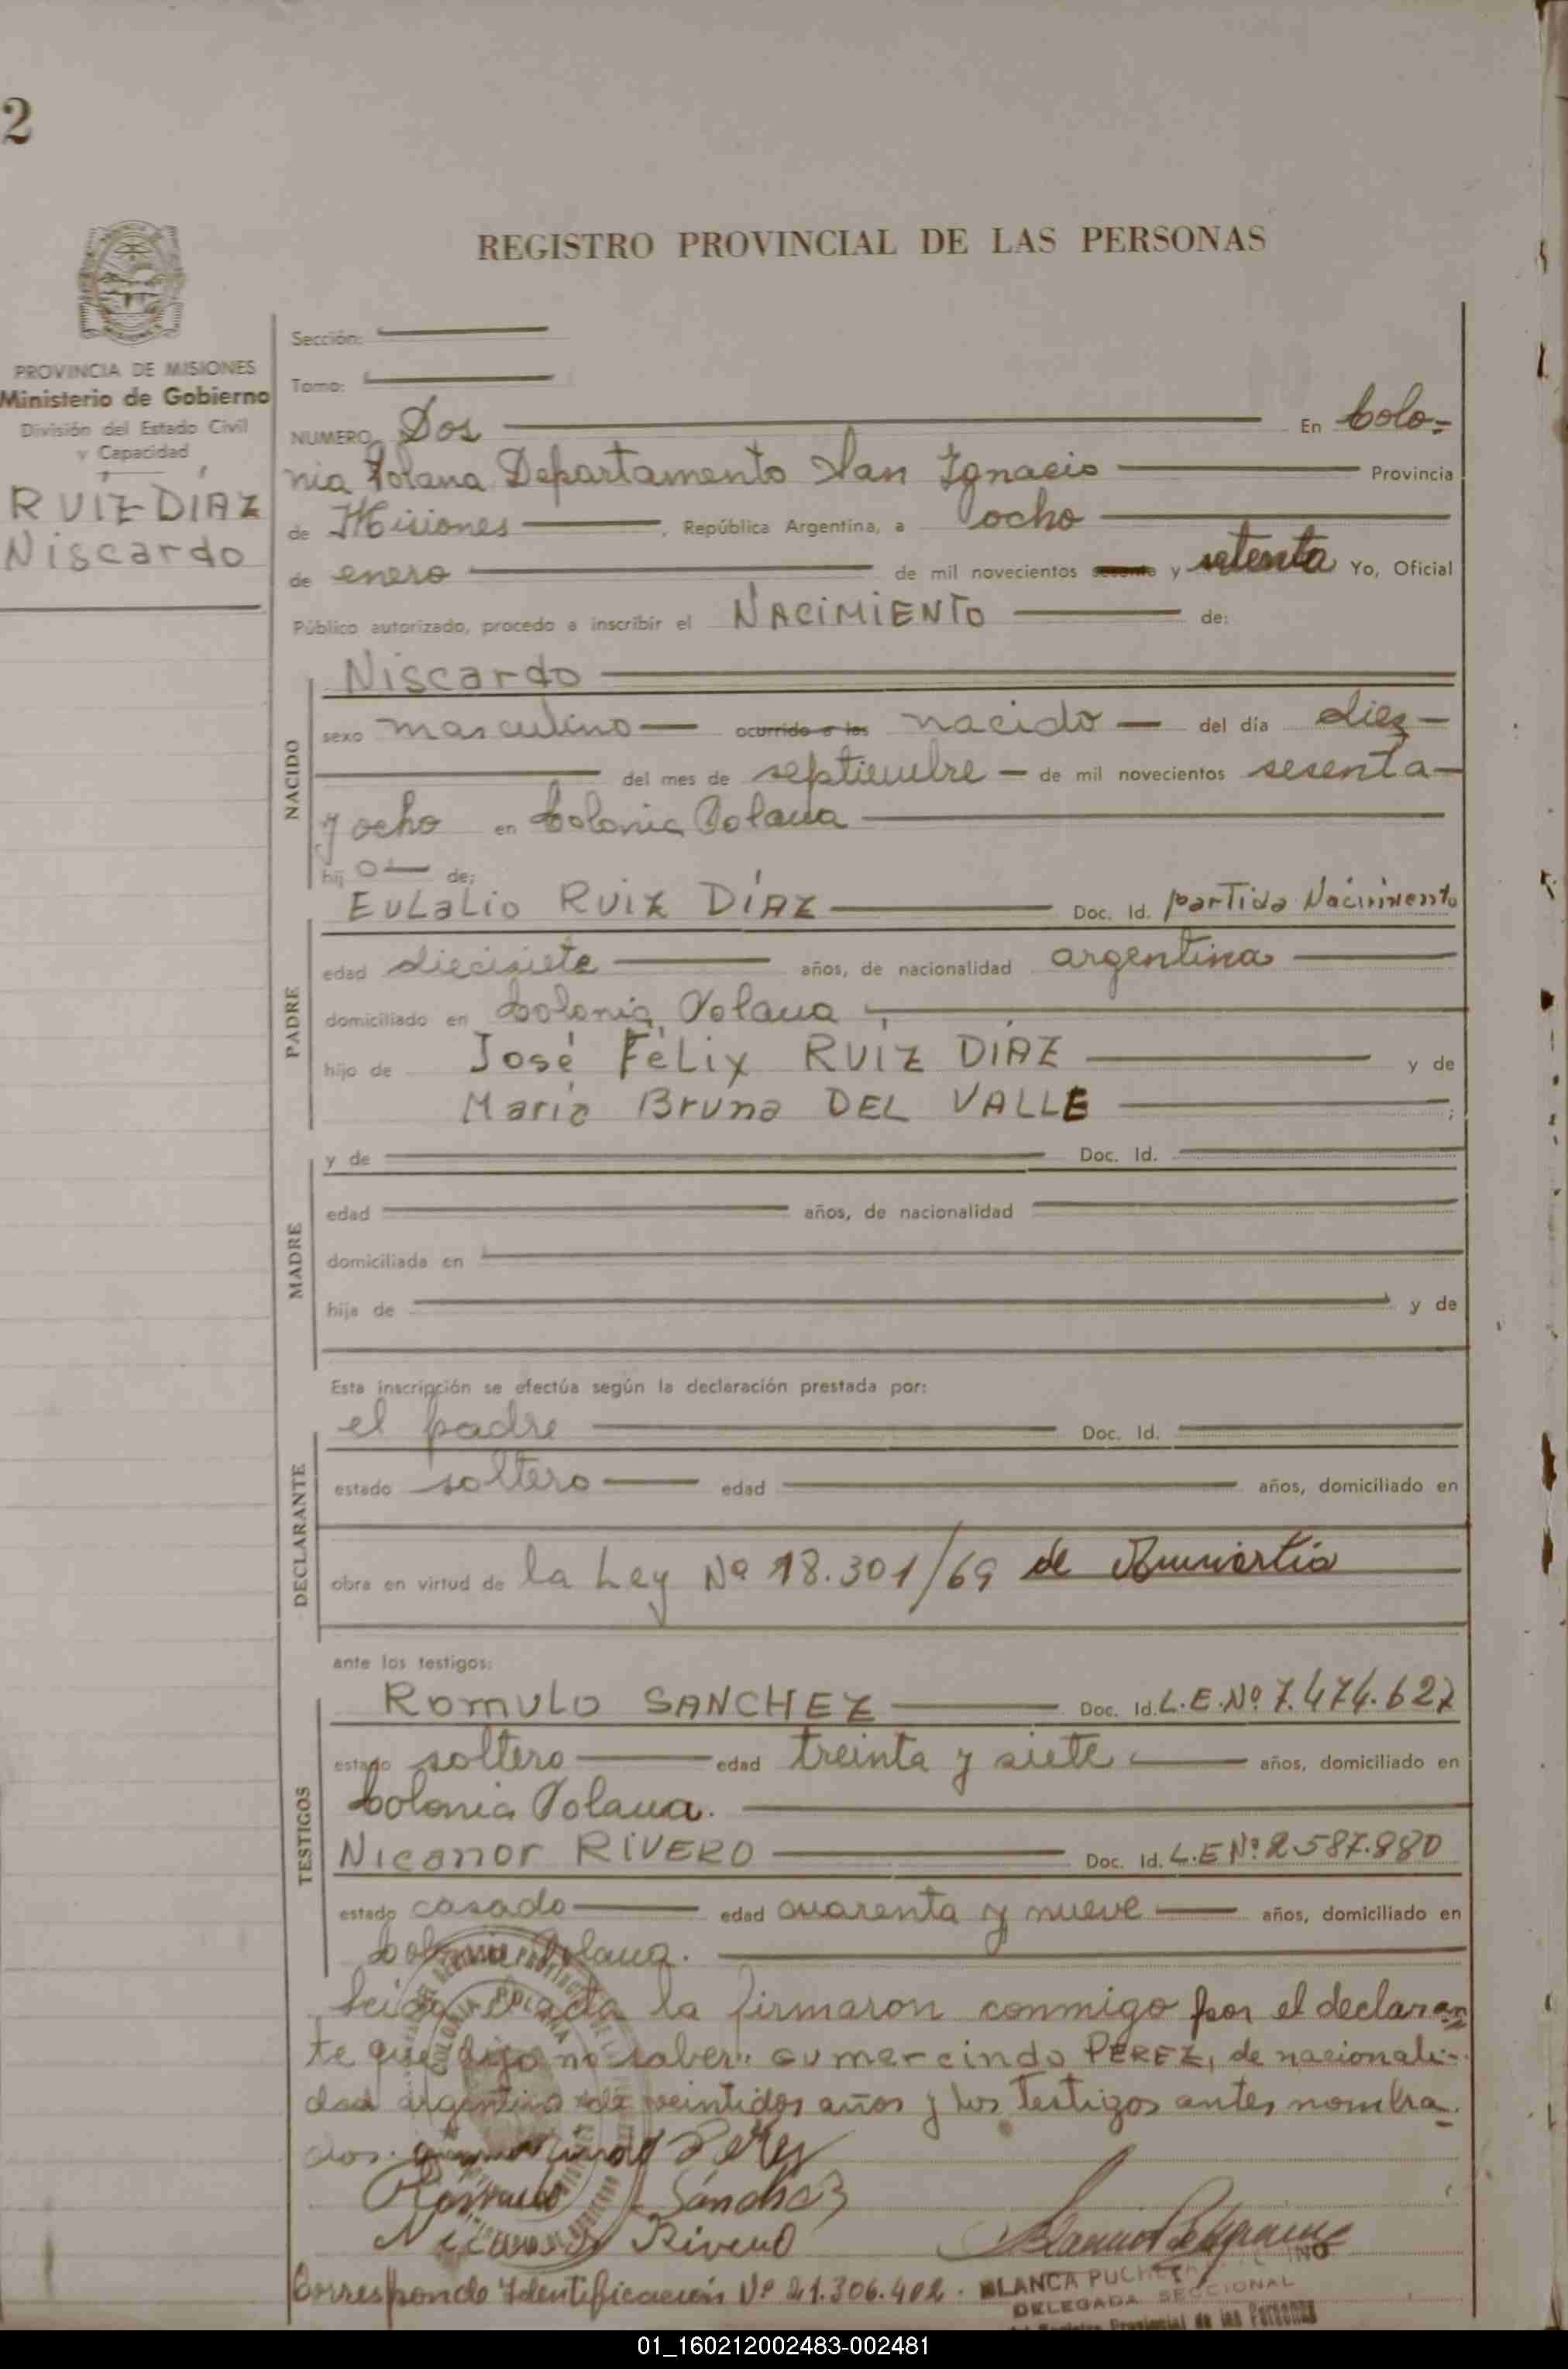 2
REGISTRO PROVINCIAL DE LAS PERSONAS
PROVINCIA DE MISIONES
Ministerio de Gobierno
División del Estado Civil
y Capacidad
RUIZ DÍAZ
Niscardo
Sección:
Tomo:
NUMERO Dos En Colo=
nia Polana Departamento San Ignacio Provincia
de Misiones, República Argentina, a ocho
de enero de mil novecientos sesenta y setenta Yo, Oficial
Público autorizado, procedo a inscribir el NACIMIENTO de:
NACIDO
Niscardo
sexo masculino ocurrido a las nacido del día diez
del mes de septiembre de mil novecientos sesenta
y ocho en Colonia Polana
hij o de:
PADRE
EULALIO RUIZ DÍAZ Doc. Id. partida Nacimiento
edad diecisiete años, de nacionalidad argentina
domiciliado en Colonia Polana
hijo de José FÉLIX RUIZ DÍAZ y de
María Bruna DEL VALLE ;
MADRE
y de Doc. Id.
edad años, de nacionalidad
domiciliada en
hija de y de
Esta inscripción se efectúa según la declaración prestada por:
DECLARANTE
el padre Doc. Id.
estado soltero edad años, domiciliado en
obra en virtud de la Ley Nº 18.301/69 de Amnistia
ante los testigos:
TESTIGOS
ROMULO SANCHEZ Doc. Id. L.E.Nº 7.474.627
estado soltero edad treinta y siete años, domiciliado en
Colonia Polana.
Nicanor RIVERO Doc. Id. L.E Nº 2.587.880
estado casado edad cuarenta y nueve años, domiciliado en
Colonia Polana.
Leida el acta la firmaron conmigo por el declaran
te que dijo no saber: Gumercindo PEREZ, de nacionali-
dad argentina de veintidos años y los testigos antes nombra
dos. Perez
Romulo Sánchez
Nicanor Rivero
Corresponde Identificación Nº 21.306.402.
BLANCA
DELEGADA SECCIONAL
del Registro Provincial de las Personas
COLONIA POLANA
01_160212002483-002481